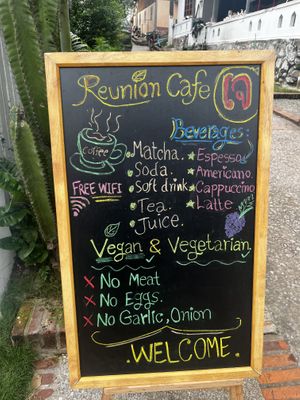 Reunion Cafe
เจ
Beverages:
Coffee
Matcha.
Espesso
Soda.
Americano
FREE WIFI
Soft drink
Cappuccino
Tea.
Latte
Juice.
Vegan & Vegetarian
× No Meat
× No Eggs.
× No Garlic, Onion
.WELCOME.